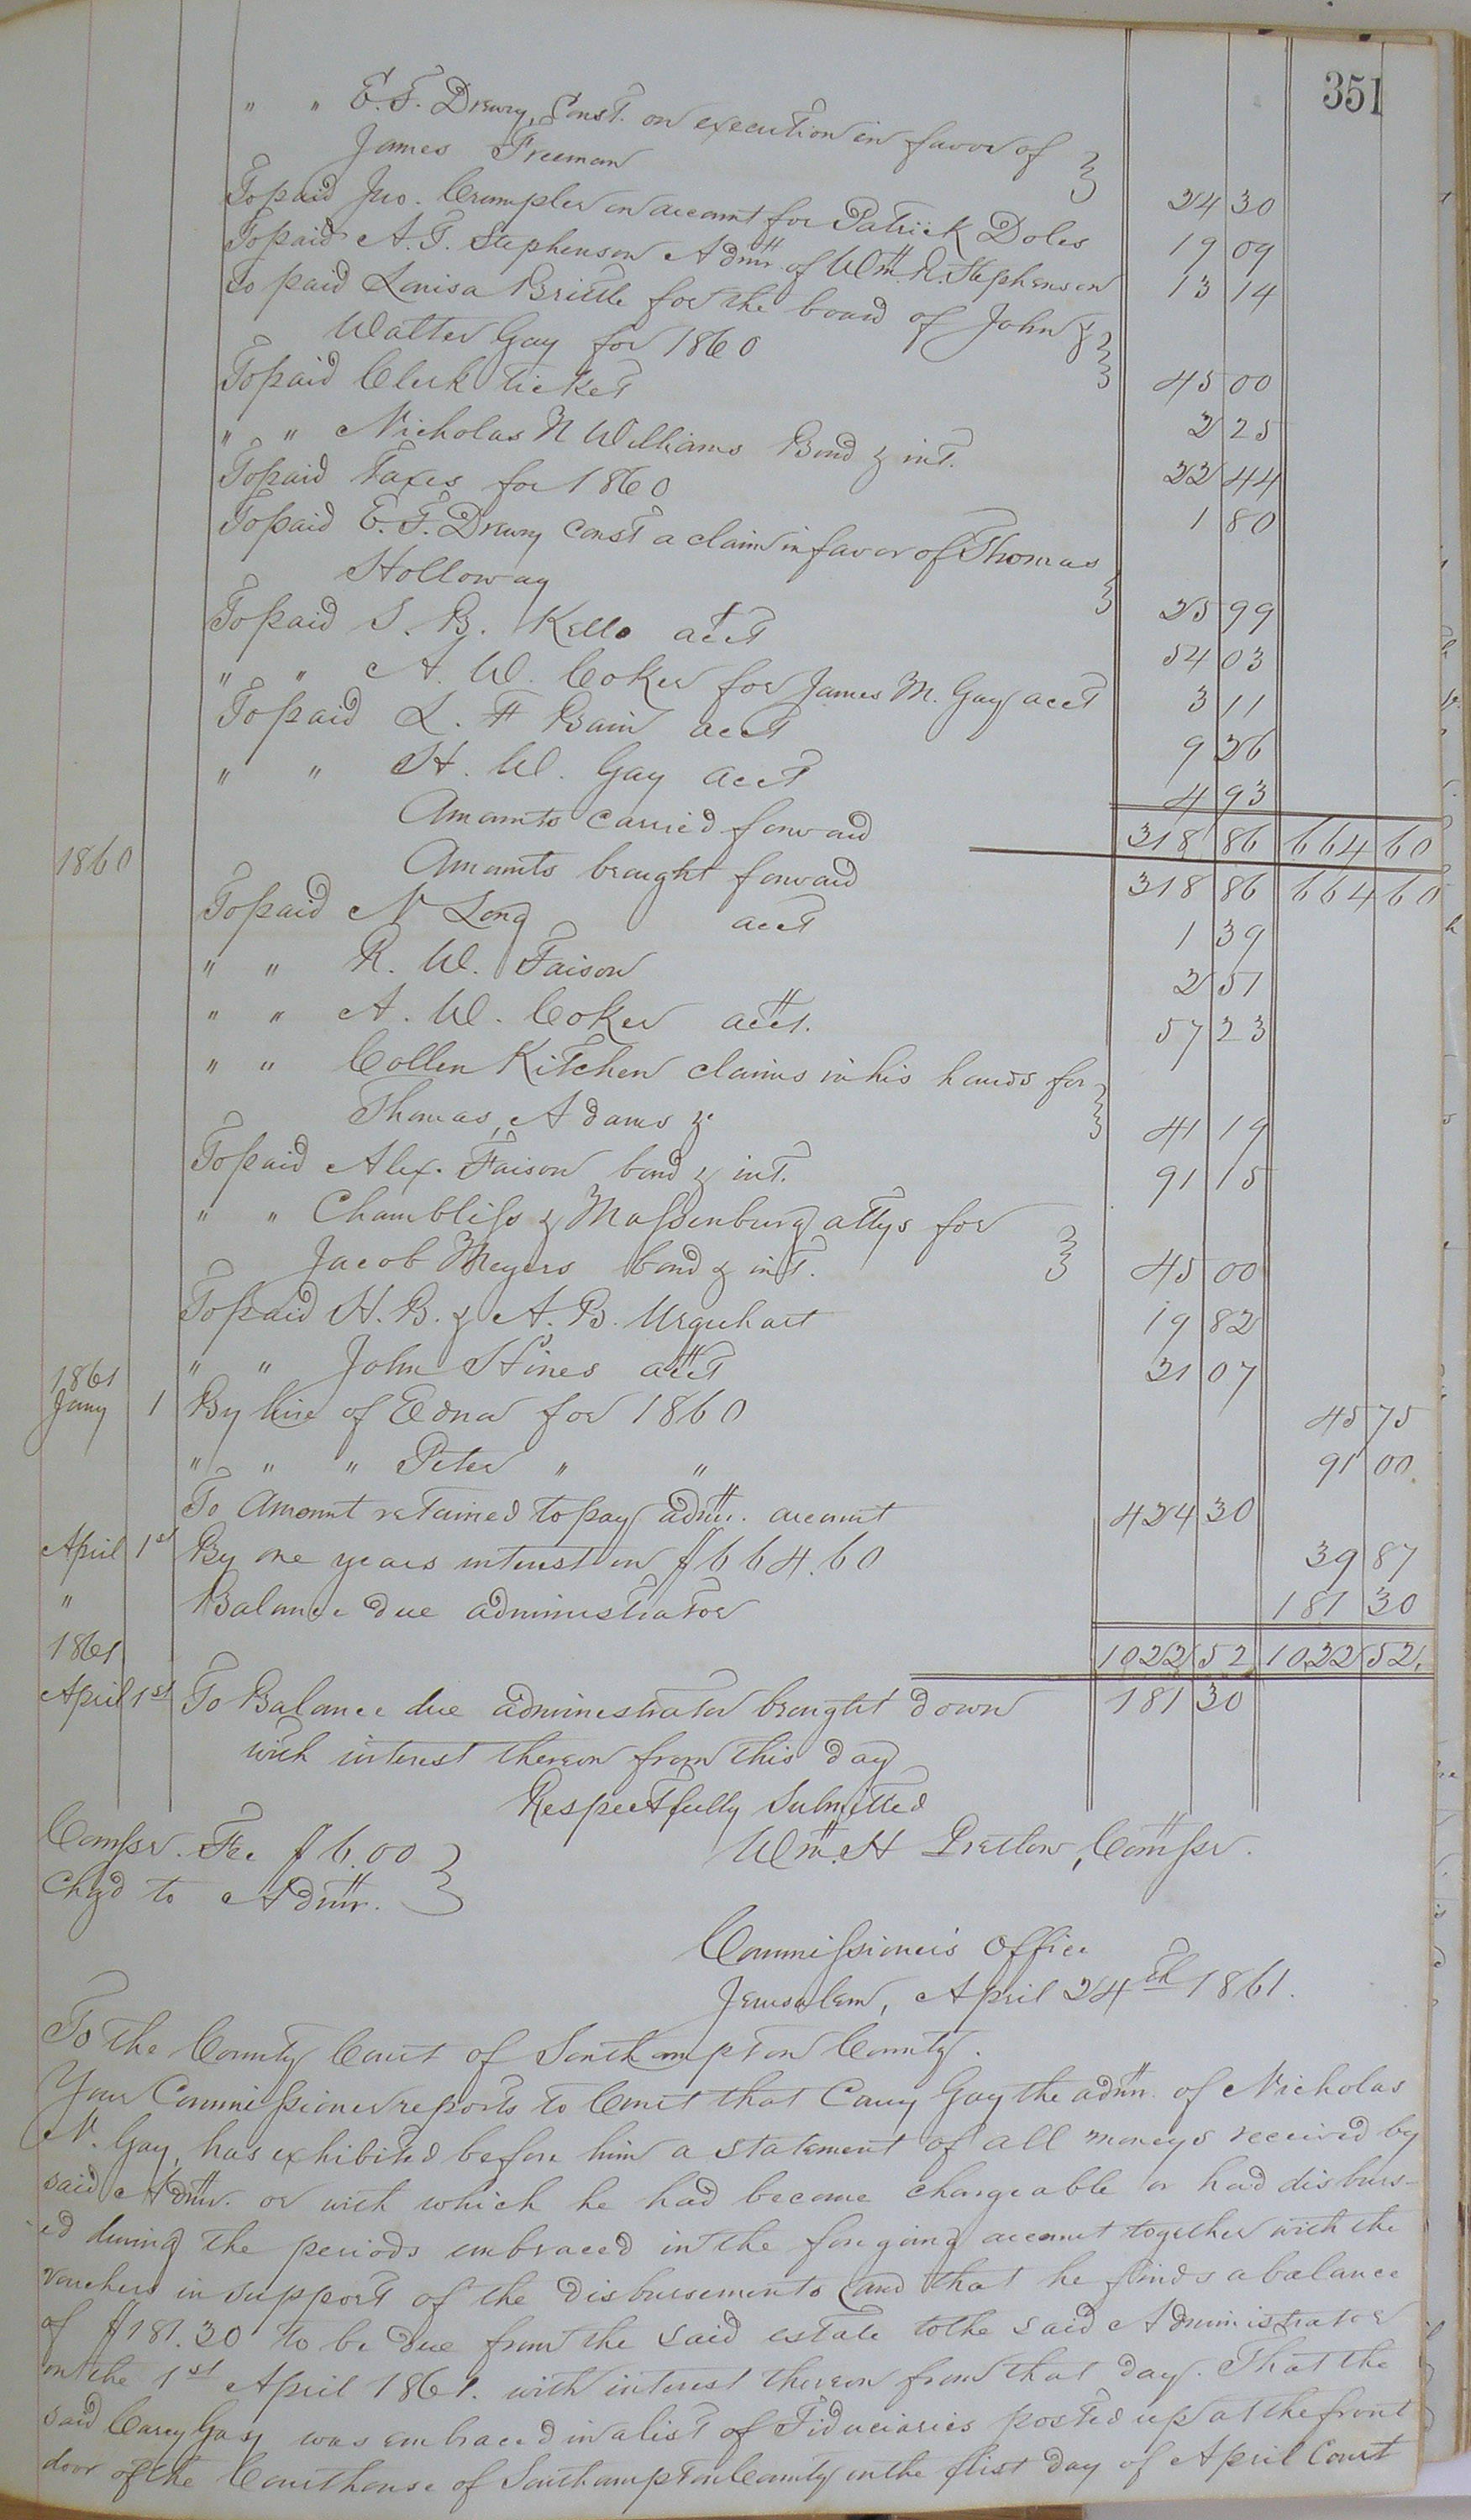 351
" " E. T. Drewry, Const. on execution in favor of
James Freeman 24 30
To paid Jno. Crumpler on account for Patrick Doles 19 09
To paid A. T. Stephenson Admr. of Wm. R. Stephenson 13 14
To paid Louisa Brittle for the board of John &
Walter Gay for 1860 45 00
To paid Clerk ticket 2 25
" " Nicholas N Williams Bond & int. 22 44
To paid taxes for 1860 1 80
To paid E. T. Drewry const a claim in favor of Thomas
Holloway 25 99
To paid S. B. Kello acct 54 03
" " A. W. Coker for James M. Gay acct 3 11
To paid L. H Bain acct 9 26
" " H. W. Gay acct 4 93
Amounts carried forward 318 86 664 60
1860 Amounts brought forward 318 86 664 60
To paid N Long acct 1 39
" " R. W. Faison 2 51
" " A. W. Coker acct. 57 23
" " Collen Kitchen claims in his hands for
Thomas, Adams &. 41 19
To paid Alex. Faison bond & int. 91 15
" " Chambliss & Massenburg attys for
Jacob Meyers bond & int. 45 00
To paid H. B. & A. B. Urquhart 19 82
" " John Hines acct 21 07
1861
Jany 1 By hire of Edna for 1860 45 75
" " " Peter " " 91 00
To Amount retained to pay admr. account 424 30
April 1st By one years interest on $664.60 39 87
" Balance due administrator 181 30
1861 1022 52 1022 52.
April 1st To Balance due administrator brought down 181 30
with interest thereon from this day
Respectfully Submitted
Wm. H Pretlow, Comssr.
Comssr. Fee $6.00
Chgd to Admr.
Commissioner's Office
Jerusalem, April 24th 1861.
To the County Court of Southampton County.
Your Commissioner reports to Court that Carey Gay the admr. of Nicholas
N. Gay, has exhibited before him a statement of all moneys received by
said Admr. or with which he had become chargeable or had disburs-
ed during the periods embraced in the foregoing account together with the
vouchers in support of the disbursements and that he finds a balance
of $181.30 to be due from the said estate to the said Administrator
on the 1st April 1861. with interest thereon from that day. That the
said Carey Gay was embraced in a list of Fiduciaries posted up at the front
door of the Courthouse of Southampton County on the first day of April Court